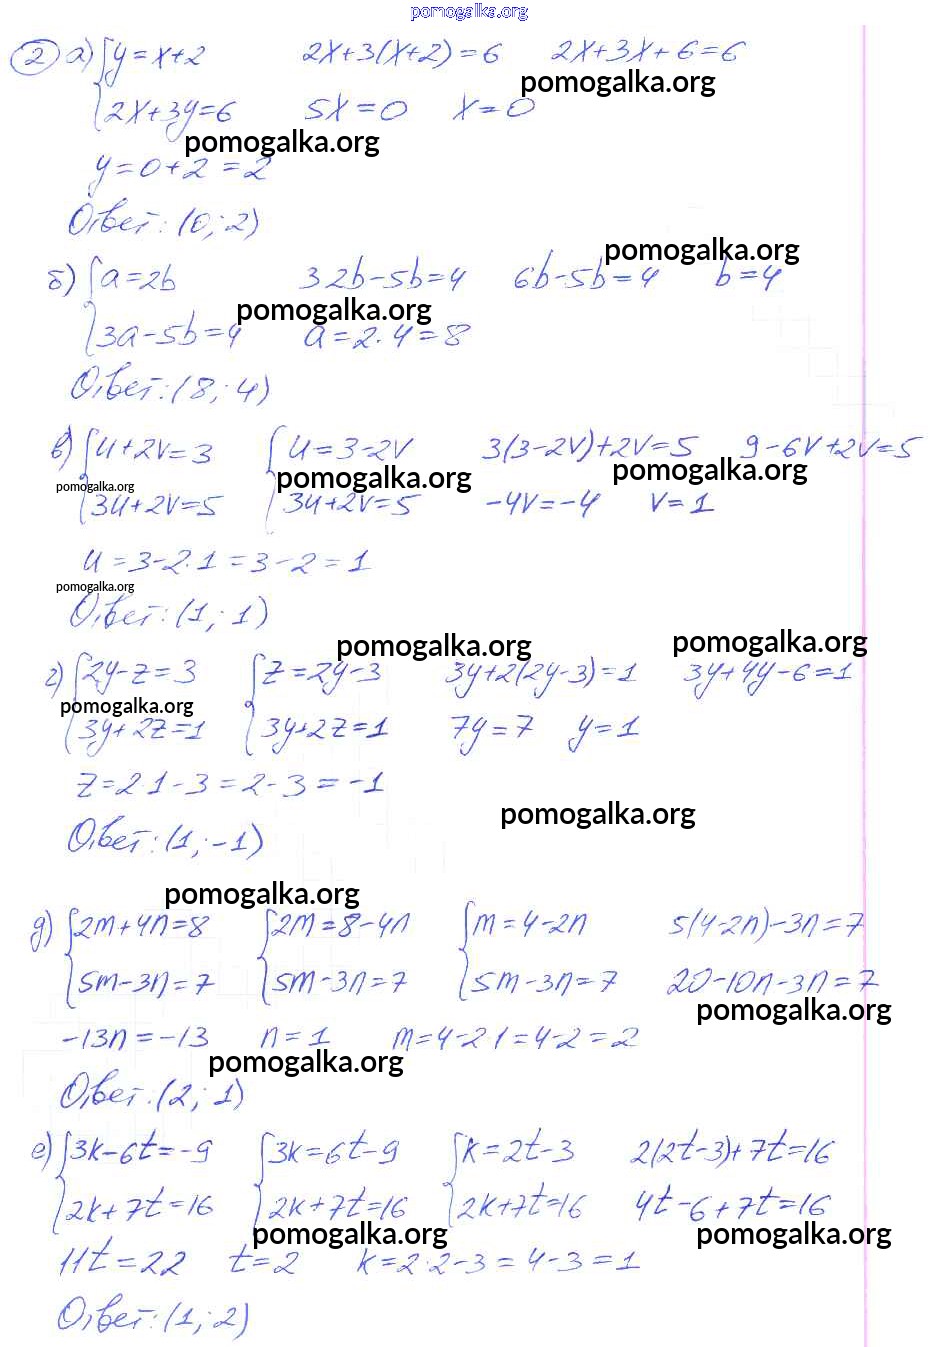 pomogalka.org
2 а) {y=x+2   2x+3(x+2)=6   2x+3x+6=6
pomogalka.org
{2x+3y=6   5x=0   x=0
pomogalka.org
y=0+2=2
Ответ: (0; 2)
pomogalka.org
б) {a=2b   3 2b-5b=4   6b-5b=4   b=4
pomogalka.org
{3a-5b=4   a=2·4=8
Ответ: (8; 4)
в) {u+2v=3   {u=3-2v   3(3-2v)+2v=5   9-6v+2v=5
pomogalka.org pomogalka.org pomogalka.org
{3u+2v=5   {3u+2v=5   -4v=-4   v=1
u=3-2·1=3-2=1
pomogalka.org
Ответ: (1; 1)
pomogalka.org pomogalka.org
г) {2y-z=3   {z=2y-3   3y+2(2y-3)=1   3y+4y-6=1
pomogalka.org
{3y+2z=1   {3y+2z=1   7y=7   y=1
z=2·1-3=2-3=-1
pomogalka.org
Ответ: (1; -1)
pomogalka.org
д) {2m+4n=8   {2m=8-4n   {m=4-2n   5(4-2n)-3n=7
{5m-3n=7   {5m-3n=7   {5m-3n=7   20-10n-3n=7
pomogalka.org
-13n=-13   n=1   m=4-2·1=4-2=2
pomogalka.org
Ответ: (2; 1)
е) {3k-6t=-9   {3k=6t-9   {k=2t-3   2(2t-3)+7t=16
{2k+7t=16   {2k+7t=16   {2k+7t=16   4t-6+7t=16
pomogalka.org pomogalka.org
11t=22   t=2   k=2·2-3=4-3=1
Ответ: (1; 2)